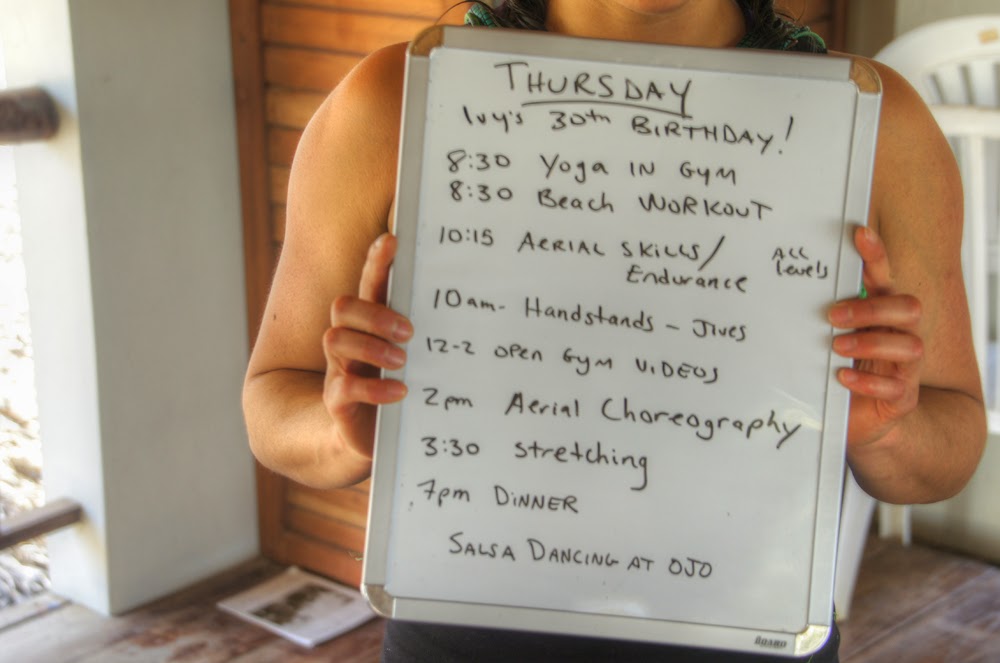 THURSDAY
Ivy's 30th BIRTHDAY!
8:30 Yoga IN GYM
8:30 Beach WORKOUT
10:15 AERIAL SKILLS/ ALL
Endurance levels
10am- Handstands - Jives
12-2 OPEN GYM VIDEOS
2pm Aerial Choreography
3:30 stretching
7pm DINNER
SALSA DANCING AT OJO
BOARD